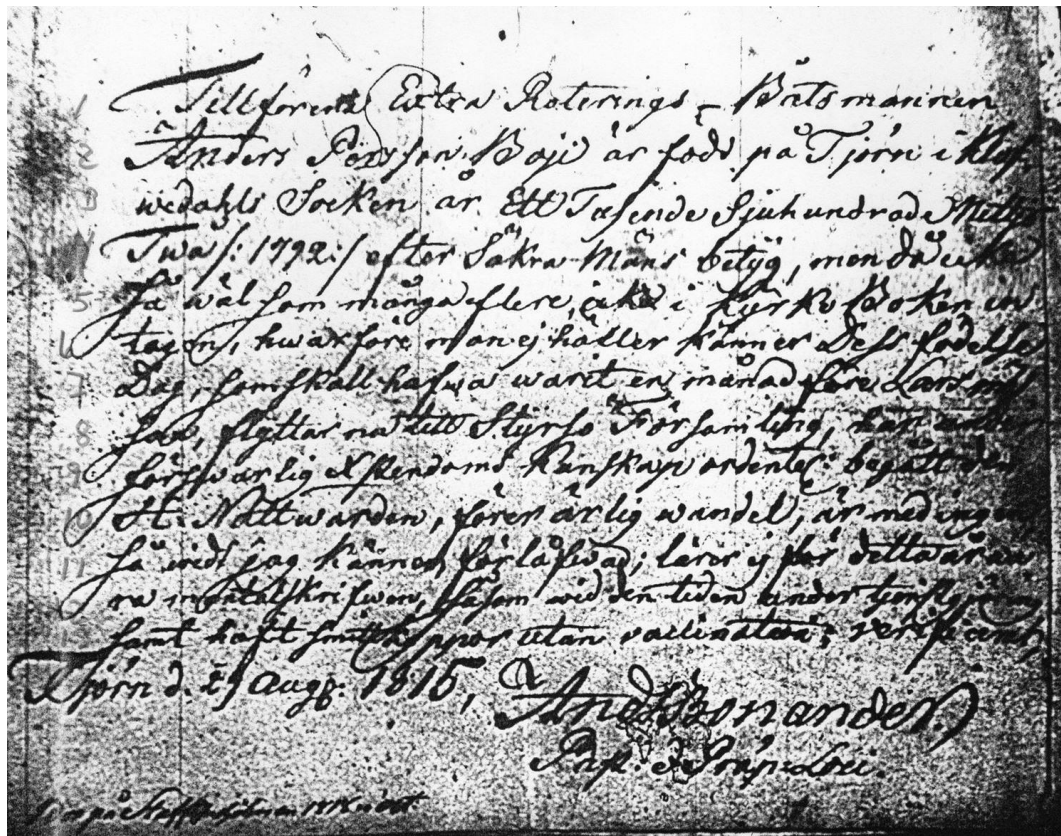 Tillförene Extra Roterings - Båtsmannen
Anders Persson Boji är född på Tjörn i Klöf-
wedahls Socken år Ett Tusende Sjuhundrade Nittio
Twå /: 1792:/ efter Säkra Mäns betyg, men då icke
så wäl som många flere, icke i Kyrko Boken in
tagen, hwarföre man ej häller känner Dess födelse
Dag, som skall hafwa warit en månad före Larsmes
sa, flyttar nu till Styrsö Församling, har
förswarlig Xstendoms Kunskap ordentel: begått den
H. Nattwarden, förer ärlig wandel, är med ingen
så widt jag känner förlofwad; lärer ej för detta wara
mantalskrifwen, såsom wid den tiden under tjenstgöring
samt haft smittkoppor utan vaccination; verificeras,
Tjörn d. 29 Aug: 1815,
And. Bonander
Prost. & Præp. Loci.